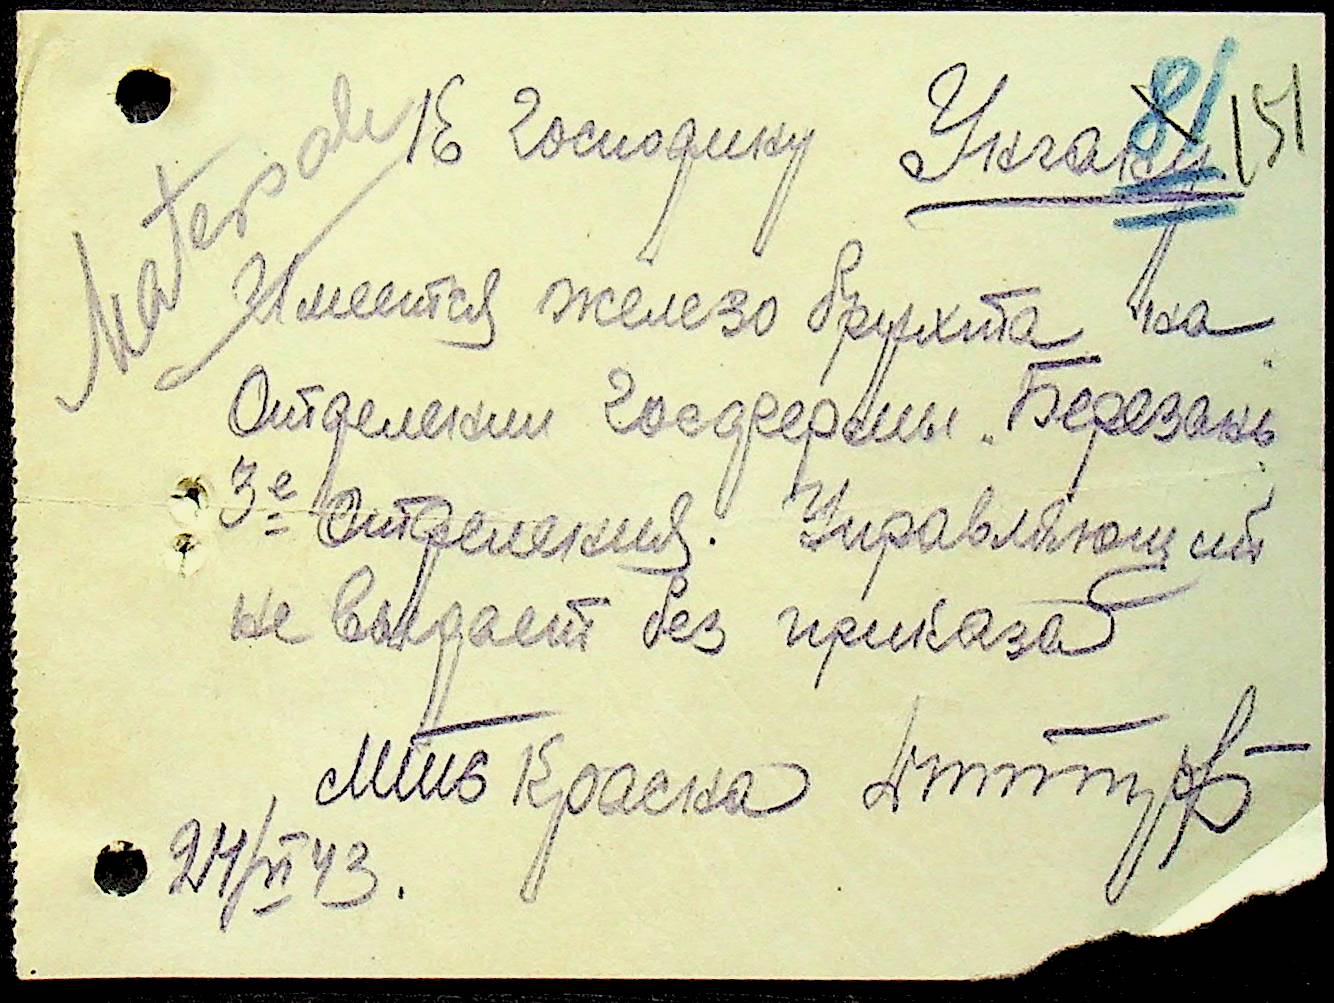 К Господину
81 151
Имеится железо брухта на
Отделении Госдфермы „Березань
3е Отделения. Управляющий
не выдает без приказа
Краска
24/VI 43.